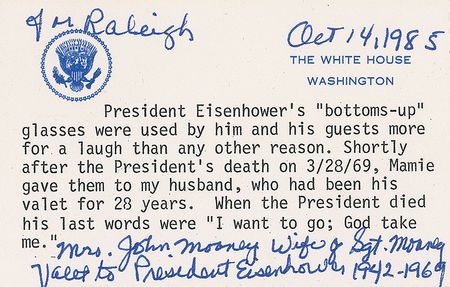 Raleigh
Oct 14, 1985
THE WHITE HOUSE
WASHINGTON
President Eisenhower's "bottoms-up"
glasses were used by him and his guests more
for a laugh than any other reason. Shortly
after the President's death on 3/28/69, Mamie
gave them to my husband, who had been his
valet for 28 years. When the President died
his last words were "I want to go; God take
me."
Mrs. John Mooney Wife of Sgt. Mooney
Valet to President Eisenhower 1942-1969